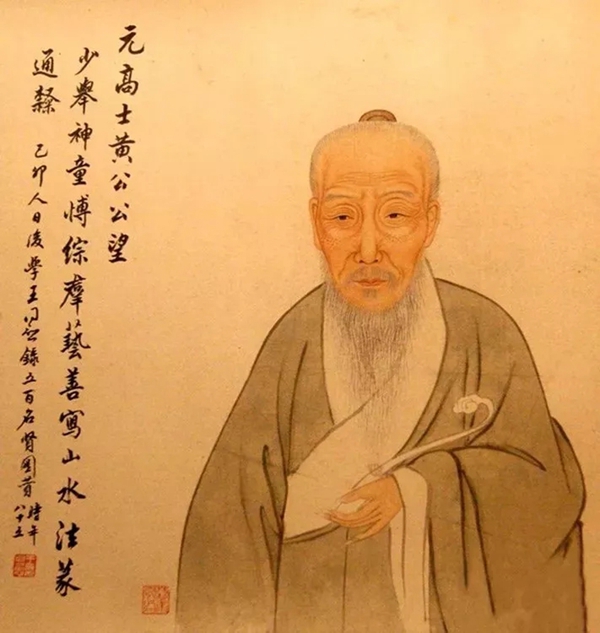 元高士黄公公望
少舉神童愽綜羣藝善寫山水法篆
通隸 己卯人日後學王同愈錄五百名賢圖贊 時年
八十五